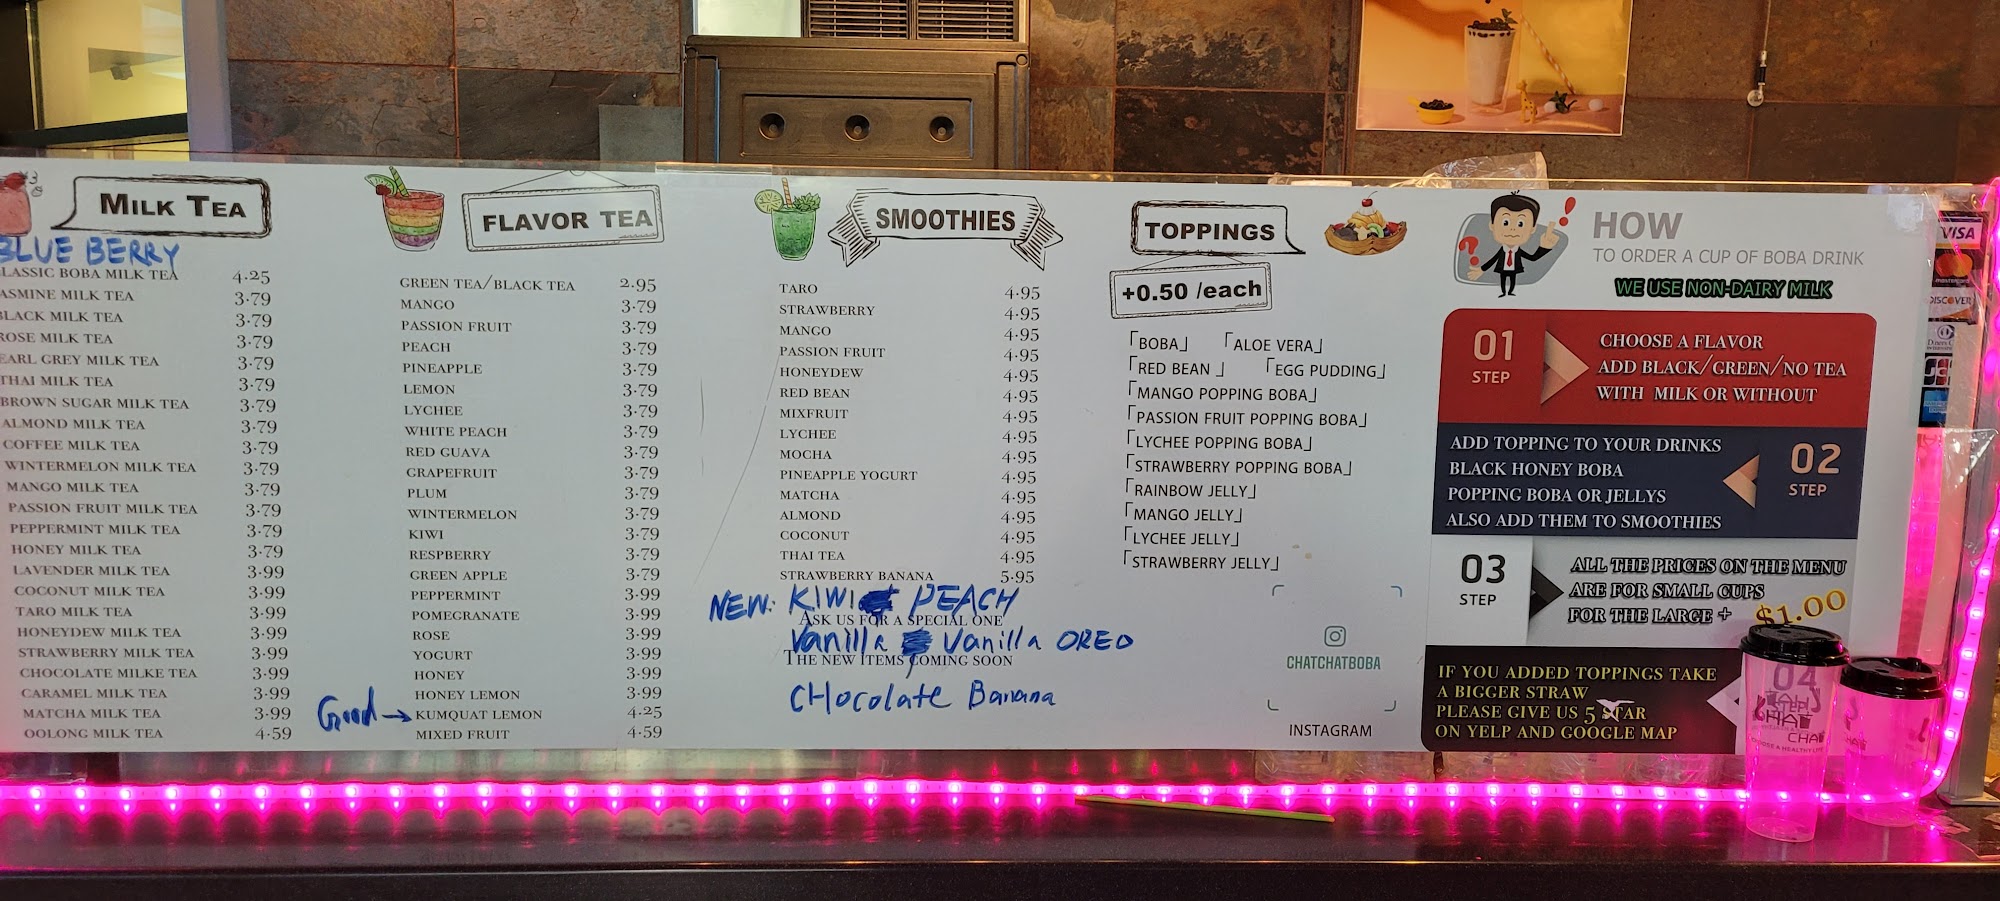 MILK TEA
BLUE BERRY
CLASSIC BOBA MILK TEA 4.25
JASMINE MILK TEA 3.79
BLACK MILK TEA 3.79
ROSE MILK TEA 3.79
EARL GREY MILK TEA 3.79
THAI MILK TEA 3.79
BROWN SUGAR MILK TEA 3.79
ALMOND MILK TEA 3.79
COFFEE MILK TEA 3.79
WINTERMELON MILK TEA 3.79
MANGO MILK TEA 3.79
PASSION FRUIT MILK TEA 3.79
PEPPERMINT MILK TEA 3.79
HONEY MILK TEA 3.79
LAVENDER MILK TEA 3.99
COCONUT MILK TEA 3.99
TARO MILK TEA 3.99
HONEYDEW MILK TEA 3.99
STRAWBERRY MILK TEA 3.99
CHOCOLATE MILKE TEA 3.99
CARAMEL MILK TEA 3.99
MATCHA MILK TEA 3.99
OOLONG MILK TEA 4.59
FLAVOR TEA
GREEN TEA/BLACK TEA 2.95
MANGO 3.79
PASSION FRUIT 3.79
PEACH 3.79
PINEAPPLE 3.79
LEMON 3.79
LYCHEE 3.79
WHITE PEACH 3.79
RED GUAVA 3.79
GRAPEFRUIT 3.79
PLUM 3.79
WINTERMELON 3.79
KIWI 3.79
RESPBERRY 3.79
GREEN APPLE 3.79
PEPPERMINT 3.99
POMEGRANATE 3.99
ROSE 3.99
YOGURT 3.99
HONEY 3.99
HONEY LEMON 3.99
Good → KUMQUAT LEMON 4.25
MIXED FRUIT 4.59
SMOOTHIES
TARO 4.95
STRAWBERRY 4.95
MANGO 4.95
PASSION FRUIT 4.95
HONEYDEW 4.95
RED BEAN 4.95
MIXFRUIT 4.95
LYCHEE 4.95
MOCHA 4.95
PINEAPPLE YOGURT 4.95
MATCHA 4.95
ALMOND 4.95
COCONUT 4.95
THAI TEA 4.95
STRAWBERRY BANANA 5.95
NEW: KIWI PEACH
ASK US FOR A SPECIAL ONE
Vanilla Vanilla OREO
THE NEW ITEMS COMING SOON
CHocolate Banana
TOPPINGS
+0.50 /each
「BOBA」 「ALOE VERA」
「RED BEAN 」 「EGG PUDDING」
「MANGO POPPING BOBA」
「PASSION FRUIT POPPING BOBA」
「LYCHEE POPPING BOBA」
「STRAWBERRY POPPING BOBA」
「RAINBOW JELLY」
「MANGO JELLY」
「LYCHEE JELLY」
「STRAWBERRY JELLY」
CHATCHATBOBA
INSTAGRAM
HOW
TO ORDER A CUP OF BOBA DRINK
WE USE NON-DAIRY MILK
01
STEP
CHOOSE A FLAVOR
ADD BLACK/GREEN/NO TEA
WITH MILK OR WITHOUT
ADD TOPPING TO YOUR DRINKS
BLACK HONEY BOBA
POPPING BOBA OR JELLYS
ALSO ADD THEM TO SMOOTHIES
02
STEP
03
STEP
ALL THE PRICES ON THE MENU
ARE FOR SMALL CUPS
FOR THE LARGE + $1.00
IF YOU ADDED TOPPINGS TAKE
A BIGGER STRAW
PLEASE GIVE US 5 STAR
ON YELP AND GOOGLE MAP
04
STEP
VISA
mastercard
DISCOVER
Diners Club
JCB